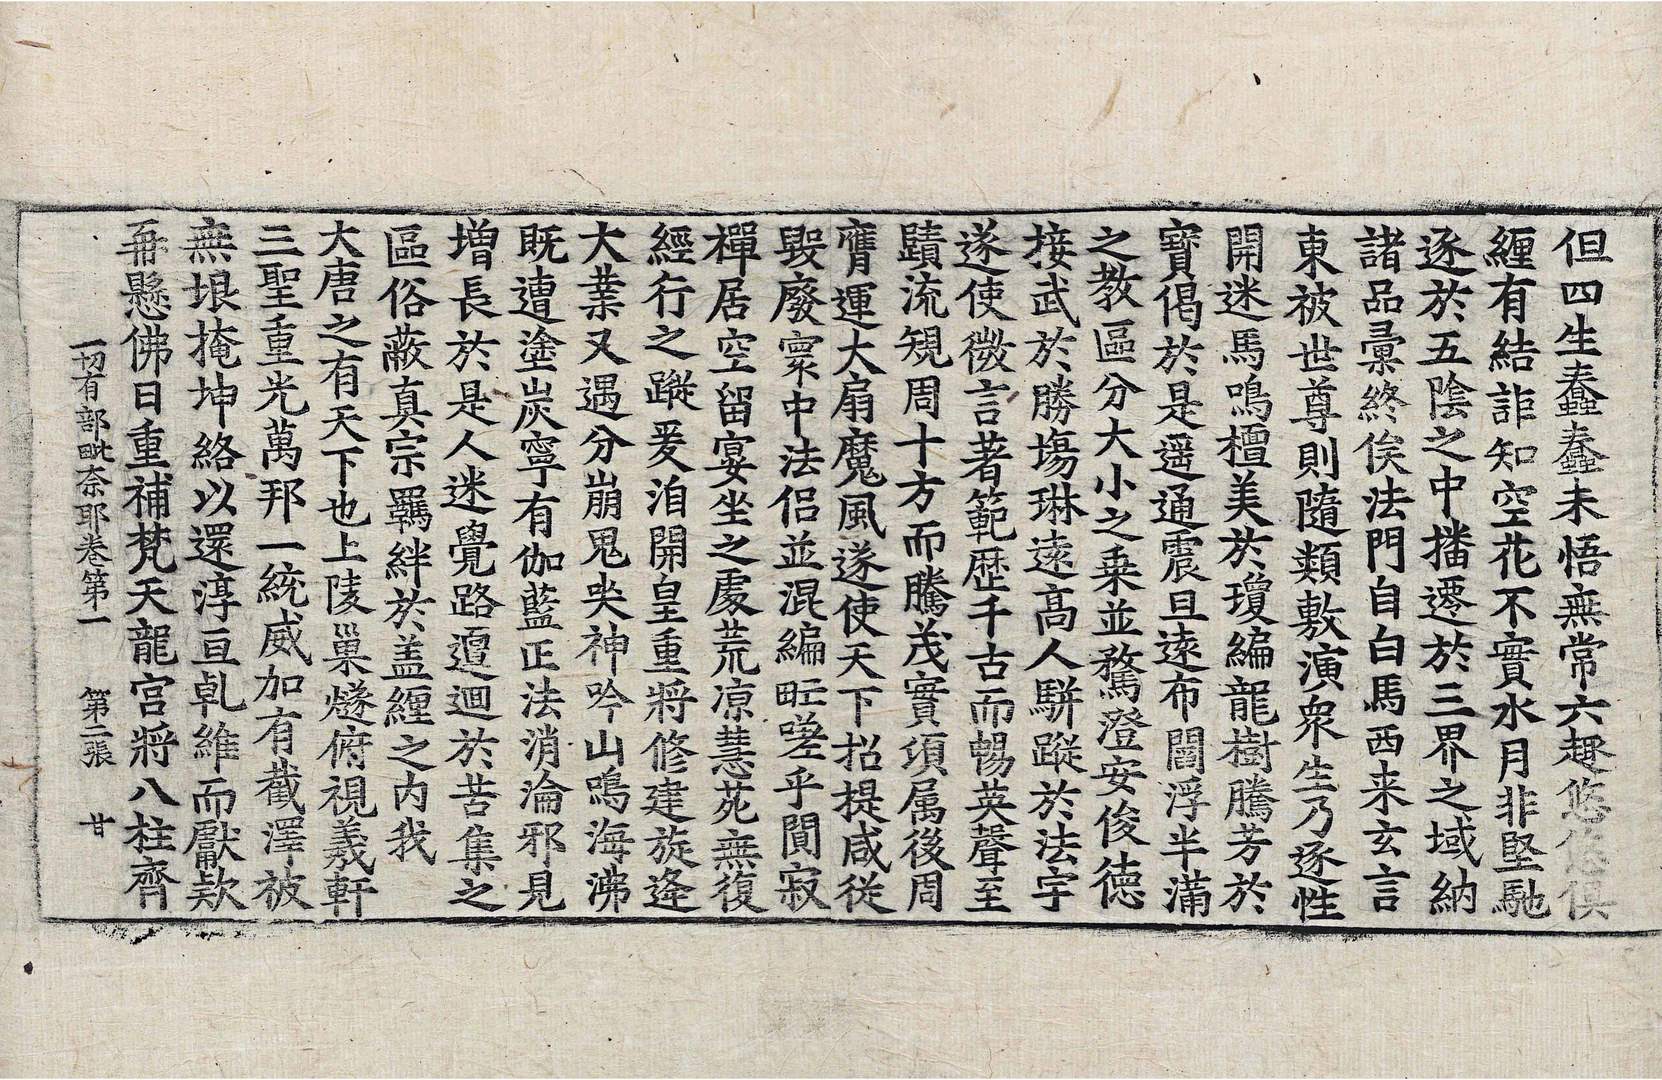 但四生蠢蠢未悟無常六趣悠悠俱
纏有結詎知空花不實水月非堅馳
逐於五陰之中播遷於三界之域納
諸品彙終俟法門自白馬西来玄言
東被世尊則隨類敷演衆生乃逐性
開迷馬鳴檀美於瓊編龍樹騰芳於
寶偈於是遥通震旦遠布閻浮半滿
之教區分大小之乗並騖澄安俊德
接武於勝場琳遠高人駢蹤於法宇
遂使微言著範歴千古而暢英聲至
賾流規周十方而騰茂實須属後周
膺運大扇魔風遂使天下招提咸従
毀廢寰中法侣並混編甿嗟乎閴寂
禪居空留宴坐之處荒凉慧苑無復
經行之蹤爰洎開皇重將修建旋逄
大業又遇分崩鬼哭神吟山鳴海沸
既遭塗炭寧有伽藍正法消淪邪見
增長於是人迷覺路邅迴於苦集之
區俗蔽真宗羈絆於盖纏之内我
大唐之有天下也上陵巢燧俯視羲軒
三聖重光萬邦一統威加有截澤被
無垠掩坤絡以還淳亘乹維而獻欵
再懸佛日重補梵天龍宫將八柱齊
一切有部毗奈耶卷第一　第二張　甘